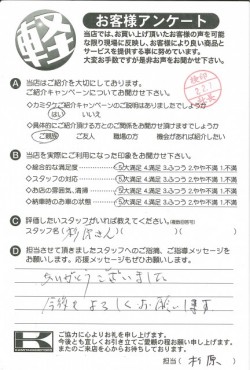 軽
お客様アンケート
当店では、お買い上げ頂いたお客様の声を可能
な限り現場に反映し、お客様により良い商品と
サービスを提供する事に努めています。
大変お手数ですが是非お声をお聞かせ下さい。
A 当店はご紹介を大切にしております。
ご紹介キャンペーンについてお聞かせ下さい
◇カミタケご紹介キャンペーンのご説明はありましたでしょうか
はい いいえ
◇具体的にご紹介頂ける方とのご関係をお聞かせ頂けますでしょうか
ご親族 ご友人 職場の方 機会があればしたい
B 当店を実際にご利用になった印象をお聞かせ下さい。
◇総合的な満足度 5大満足 4.満足 3.ふつう 2.やや不満 1.不満
◇スタッフの対応 5大満足 4.満足 3.ふつう 2.やや不満 1.不満
◇お店の雰囲気、清掃 5大満足 4.満足 3.ふつう 2.やや不満 1.不満
◇納車時のお車の状態 5大満足 4.満足 3.ふつう 2.やや不満 1.不満
C 評価したいスタッフがいれば教えてください。(複数回答可)
スタッフ名(杉原さん)
D 担当させて頂きましたスタッフへのご感想、ご応援メッセージを
お願いします。応援メッセージもぜひお願いします。
ありがとうございました
今後もよろしくお願いします
K
ご協力に心よりお礼を申し上げます。
今後とも宜しくお引き立てご愛顧の程お願い申し上げます。
またのご来店を心からお待ちしております。
担当(杉原)